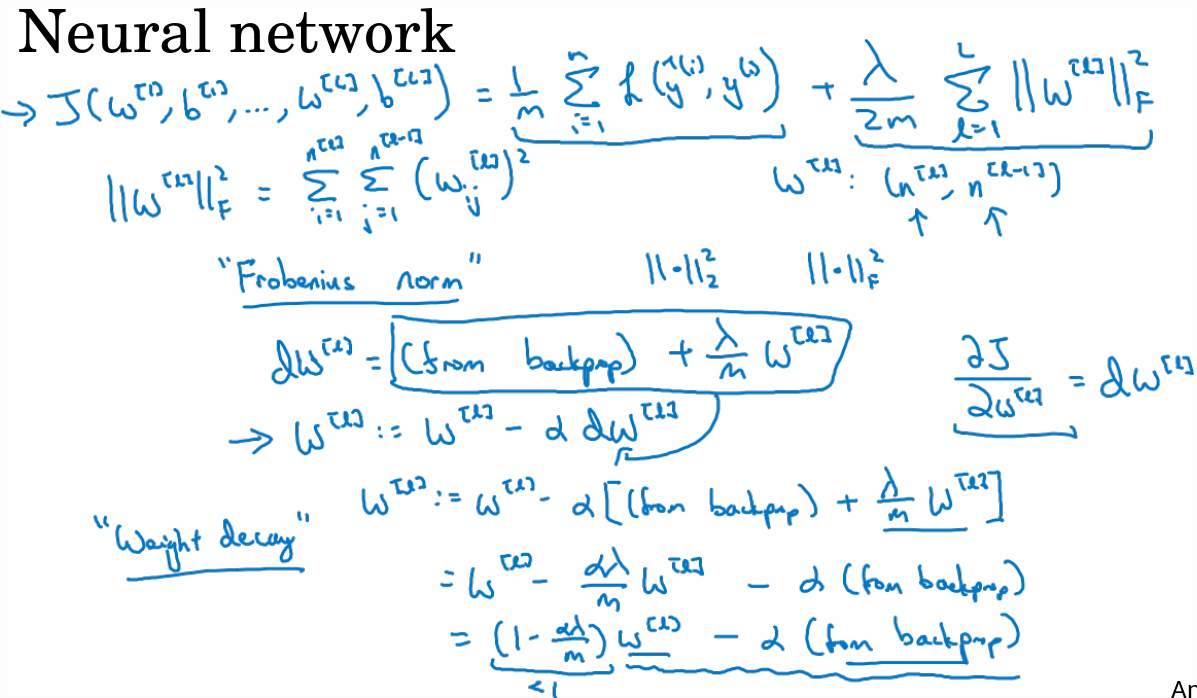 Neural network
→ J(w^[1], b^[1], ..., w^[L], b^[L]) = 1/m ∑_{i=1}^{n} L(ŷ^(i), y^(i)) + λ/2m ∑_{l=1}^{L} ||w^[l]||_F^2
||w^[l]||_F^2 = ∑_{i=1}^{n^[l]} ∑_{j=1}^{n^[l-1]} (w_ij^[l])^2    w^[l]: (n^[l], n^[l-1])
↑ ↑
"Frobenius norm"    ||·||_2^2    ||·||_F^2
dw^[l] = (from backprop) + λ/m w^[l]    ∂J/∂w^[l] = dw^[l]
→ w^[l] := w^[l] - α dw^[l]
"Weight decay"    w^[l] := w^[l] - α[(from backprop) + λ/m w^[l]]
= w^[l] - αλ/m w^[l] - α (from backprop)
= (1 - αλ/m) w^[l] - α (from backprop)
<1
An